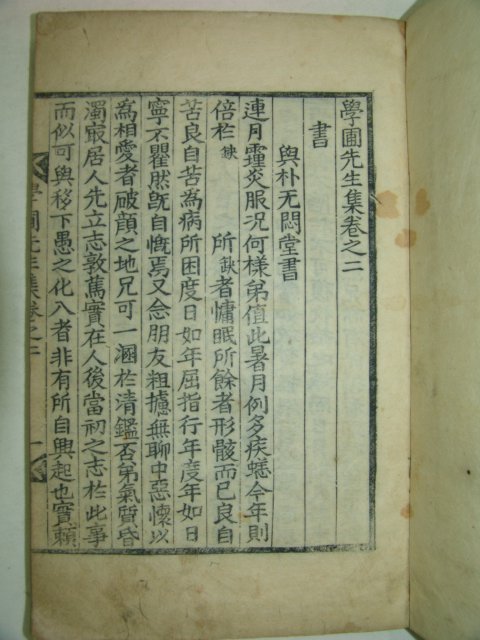 學圃先生集卷之二
書
與朴无悶堂書
連月霾炎服況何樣弟値此暑月例多疾蟋今年則
倍於缺　　　所缺者慵眠所餘者形骸而已良自
苦良自苦爲病所困度日如年屈指行年度年如日
寧不瞿然旣自慨焉又念朋友粗攄無聊中惡懷以
爲相愛者破顔之地兄可一溷於清鑑否弟氣質昏
濁寂居人先立志敦篤實在人後當初之志於此事
而似可與移下愚之化入者非有所自興起也實賴
學圃先生集卷之二
一